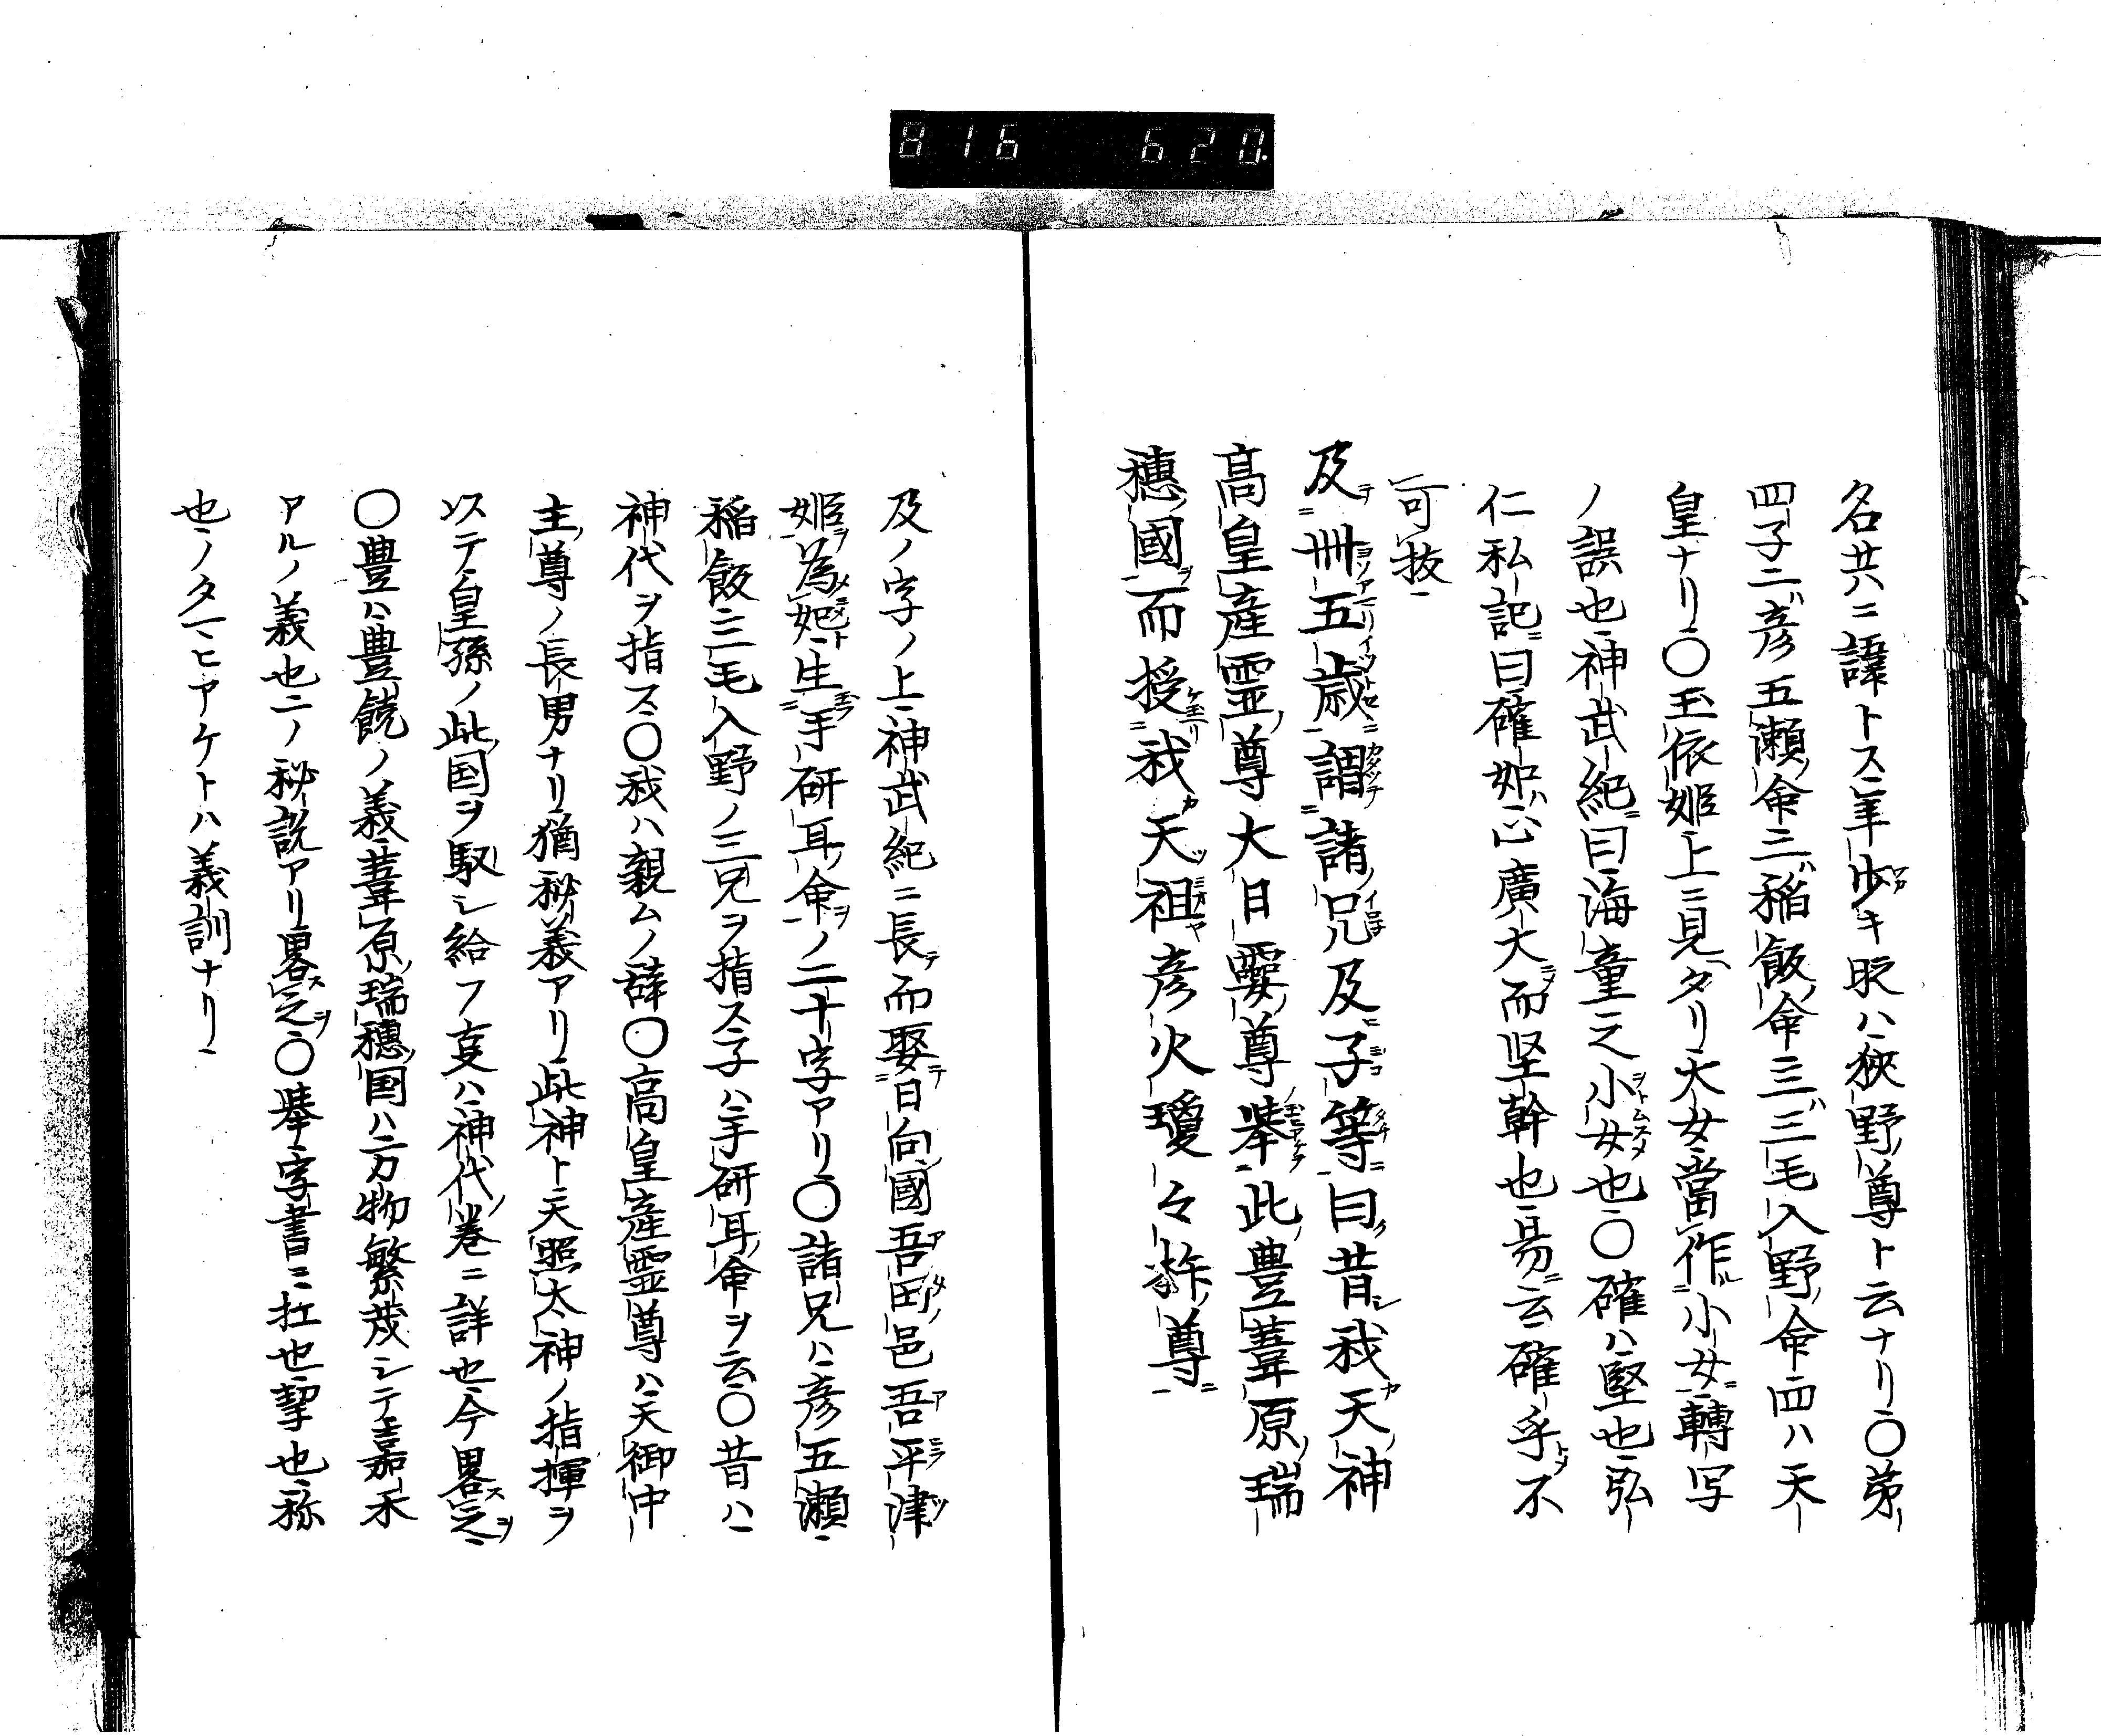 816 620.
名共ニ諱トス年少キ時ハ狭野尊ト云ナリ〇第
四子ニハ彦五瀬命二ハ稲飯命三ハ三毛入野命四ハ天
皇ナリ〇玉依姫上ニ見タリ大女當作小女轉写
ノ誤也神武紀曰海童之小女也〇確ハ堅也弘
仁私記曰確如心廣大而坚幹也易云確乎不
可抜
及卌五歳謂諸兄及子等曰昔我天神
高皇産霊尊大日孁尊挙此豊葦原瑞
穂國而授我天祖彦火瓊々杵尊
及ノ字ノ上神武紀ニ長而娶日向國吾田邑吾平津
姫為妃生手研耳命ノ二十字アリ〇諸兄ハ彦五瀬
稲飯三毛入野ノ三兄ヲ指ス子ハ手研耳命ヲ云〇昔ハ
神代ヲ指ス〇我ハ親ムノ辞〇高皇産霊尊ハ天御中
主尊ノ長男ナリ猶秘義アリ此神ト天照太神ノ指揮ヲ
以テ皇孫ノ此国ヲ馭シ給フ支ハ神代巻ニ詳也今畧之
〇豊ハ豊饒ノ義葦原瑞穂国ハ万物繁茂シテ嘉禾
アルノ義也二ノ秘説アリ畧之〇挙字書ニ扛也挈也称
也ノタマヒアケトハ義訓ナリ